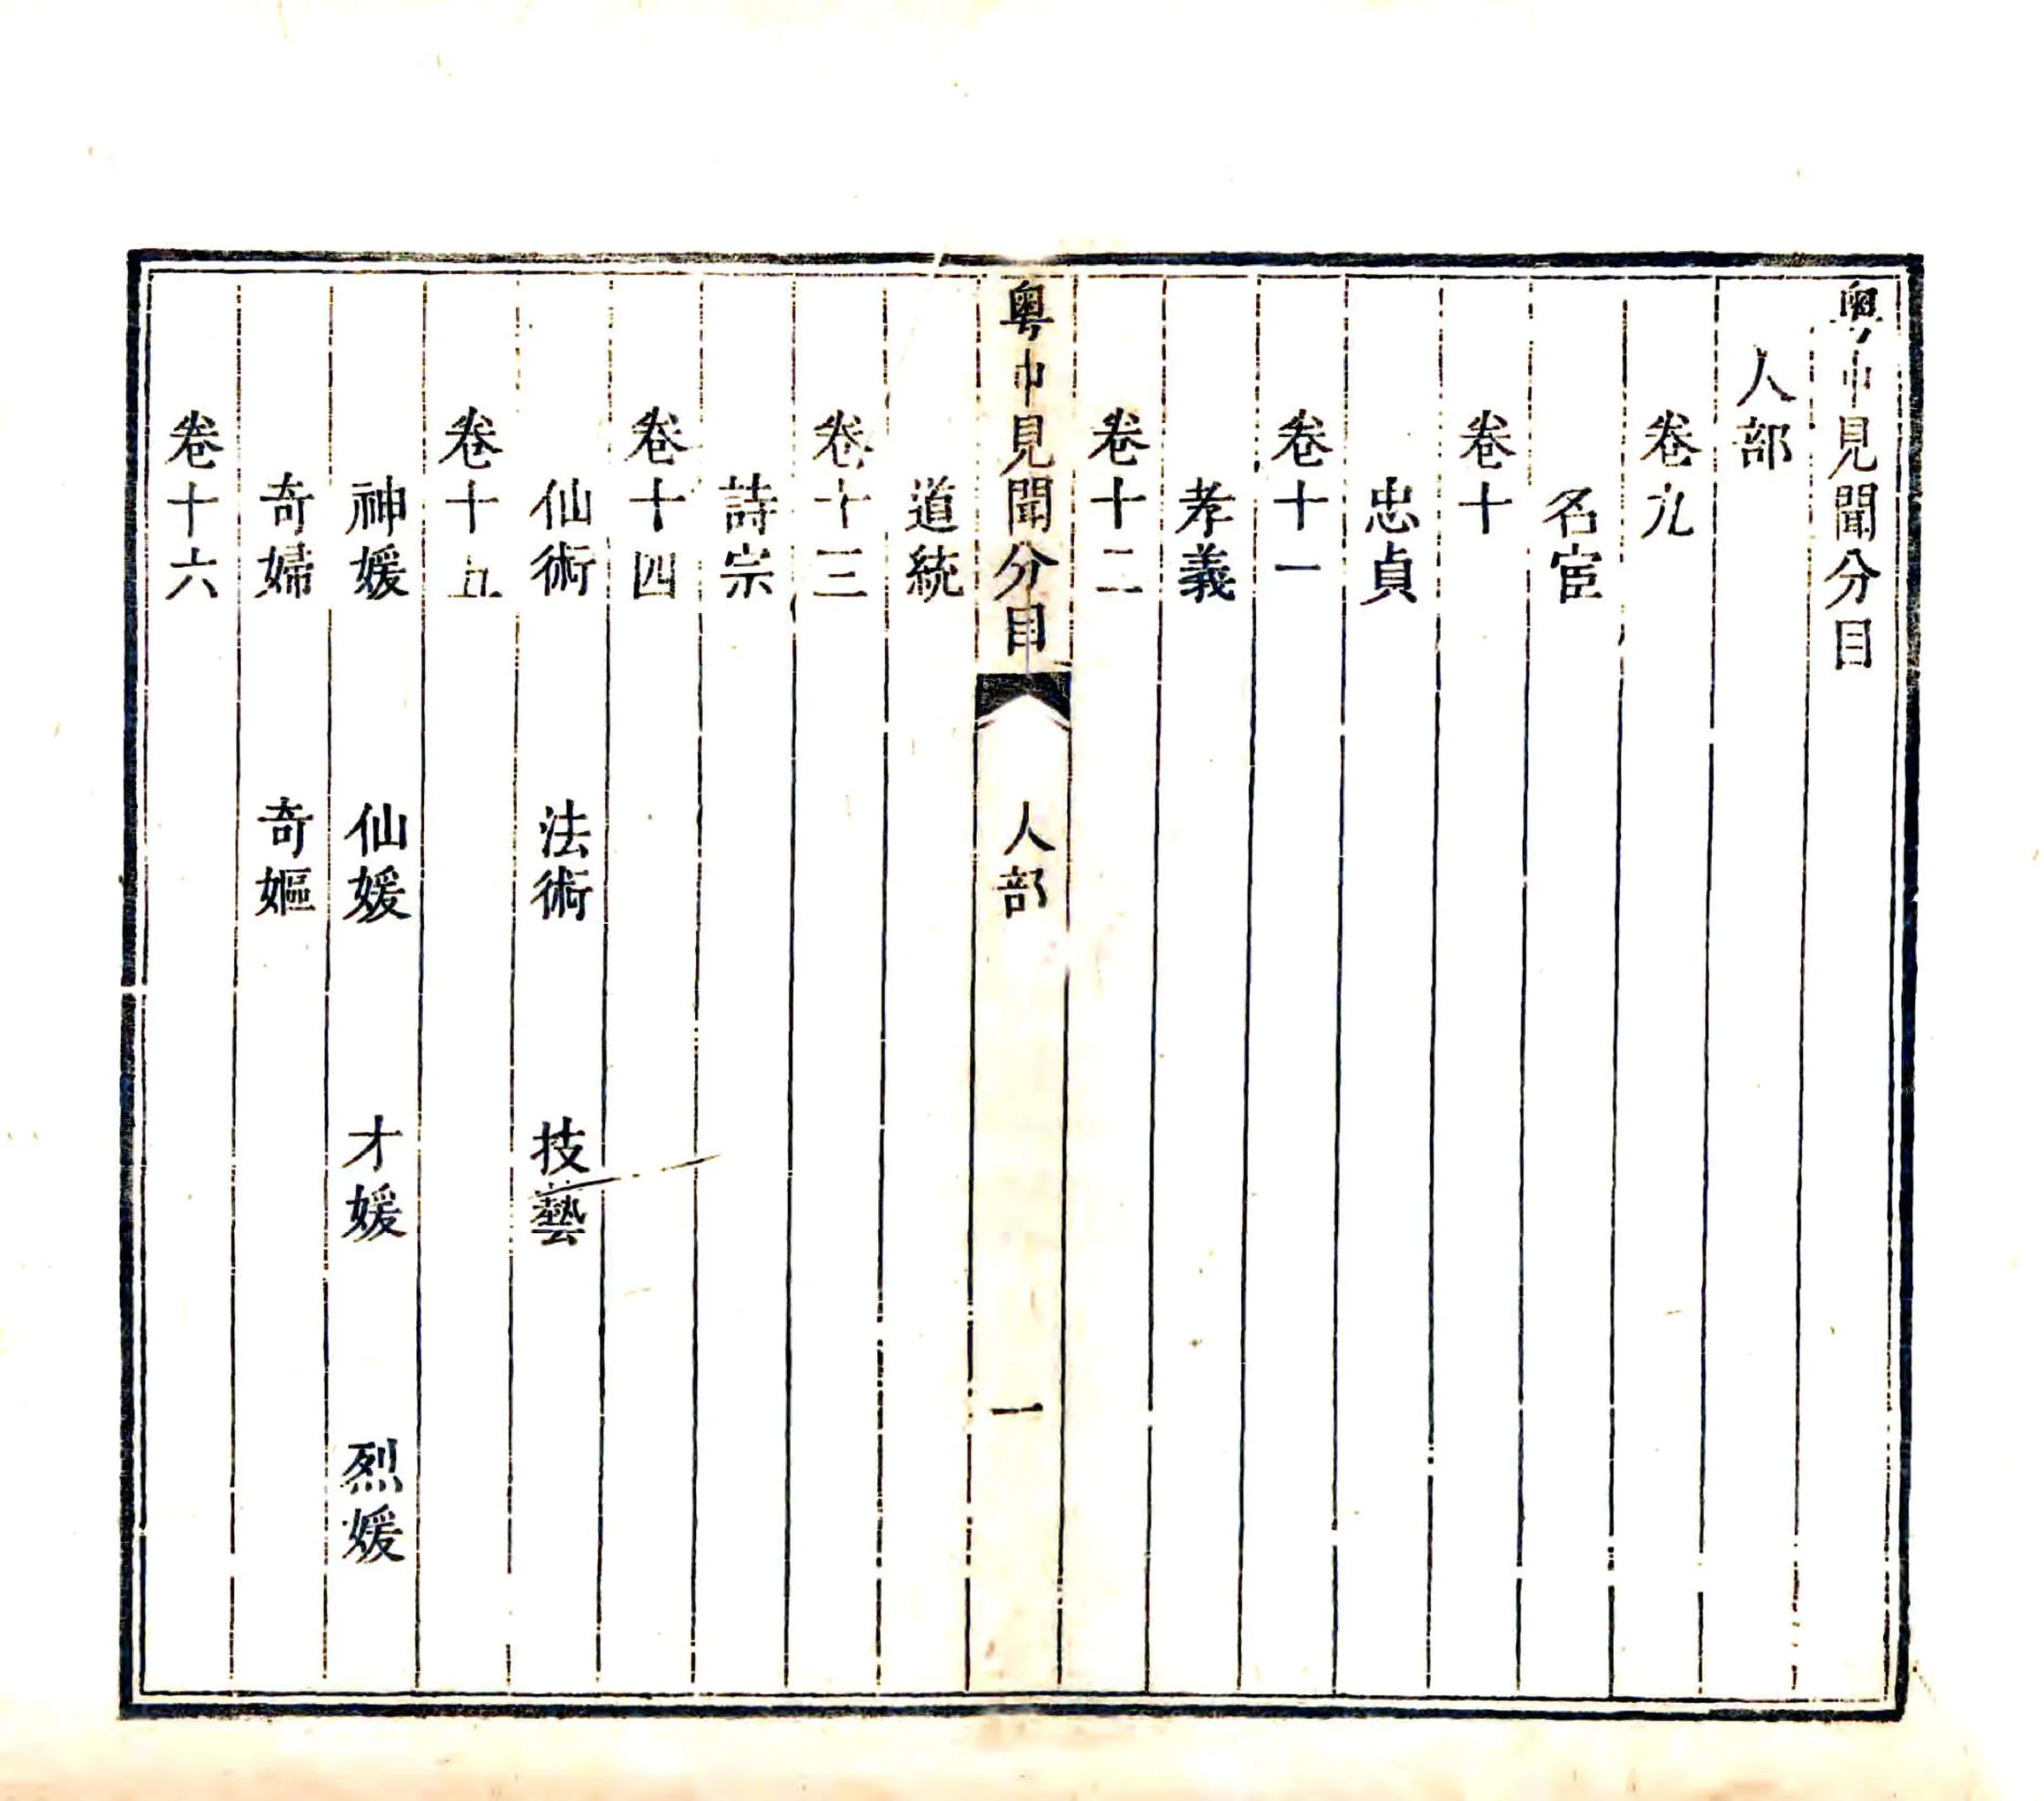 粤中見聞分目
人部
卷九
名宦
卷十
忠貞
卷十一
孝義
卷十二
粤中見聞分目 人部 一
道統
卷十三
詩宗
卷十四
仙術 法術 技藝
卷十五
神媛 仙媛 才媛 烈媛
奇婦 奇嫗
卷十六